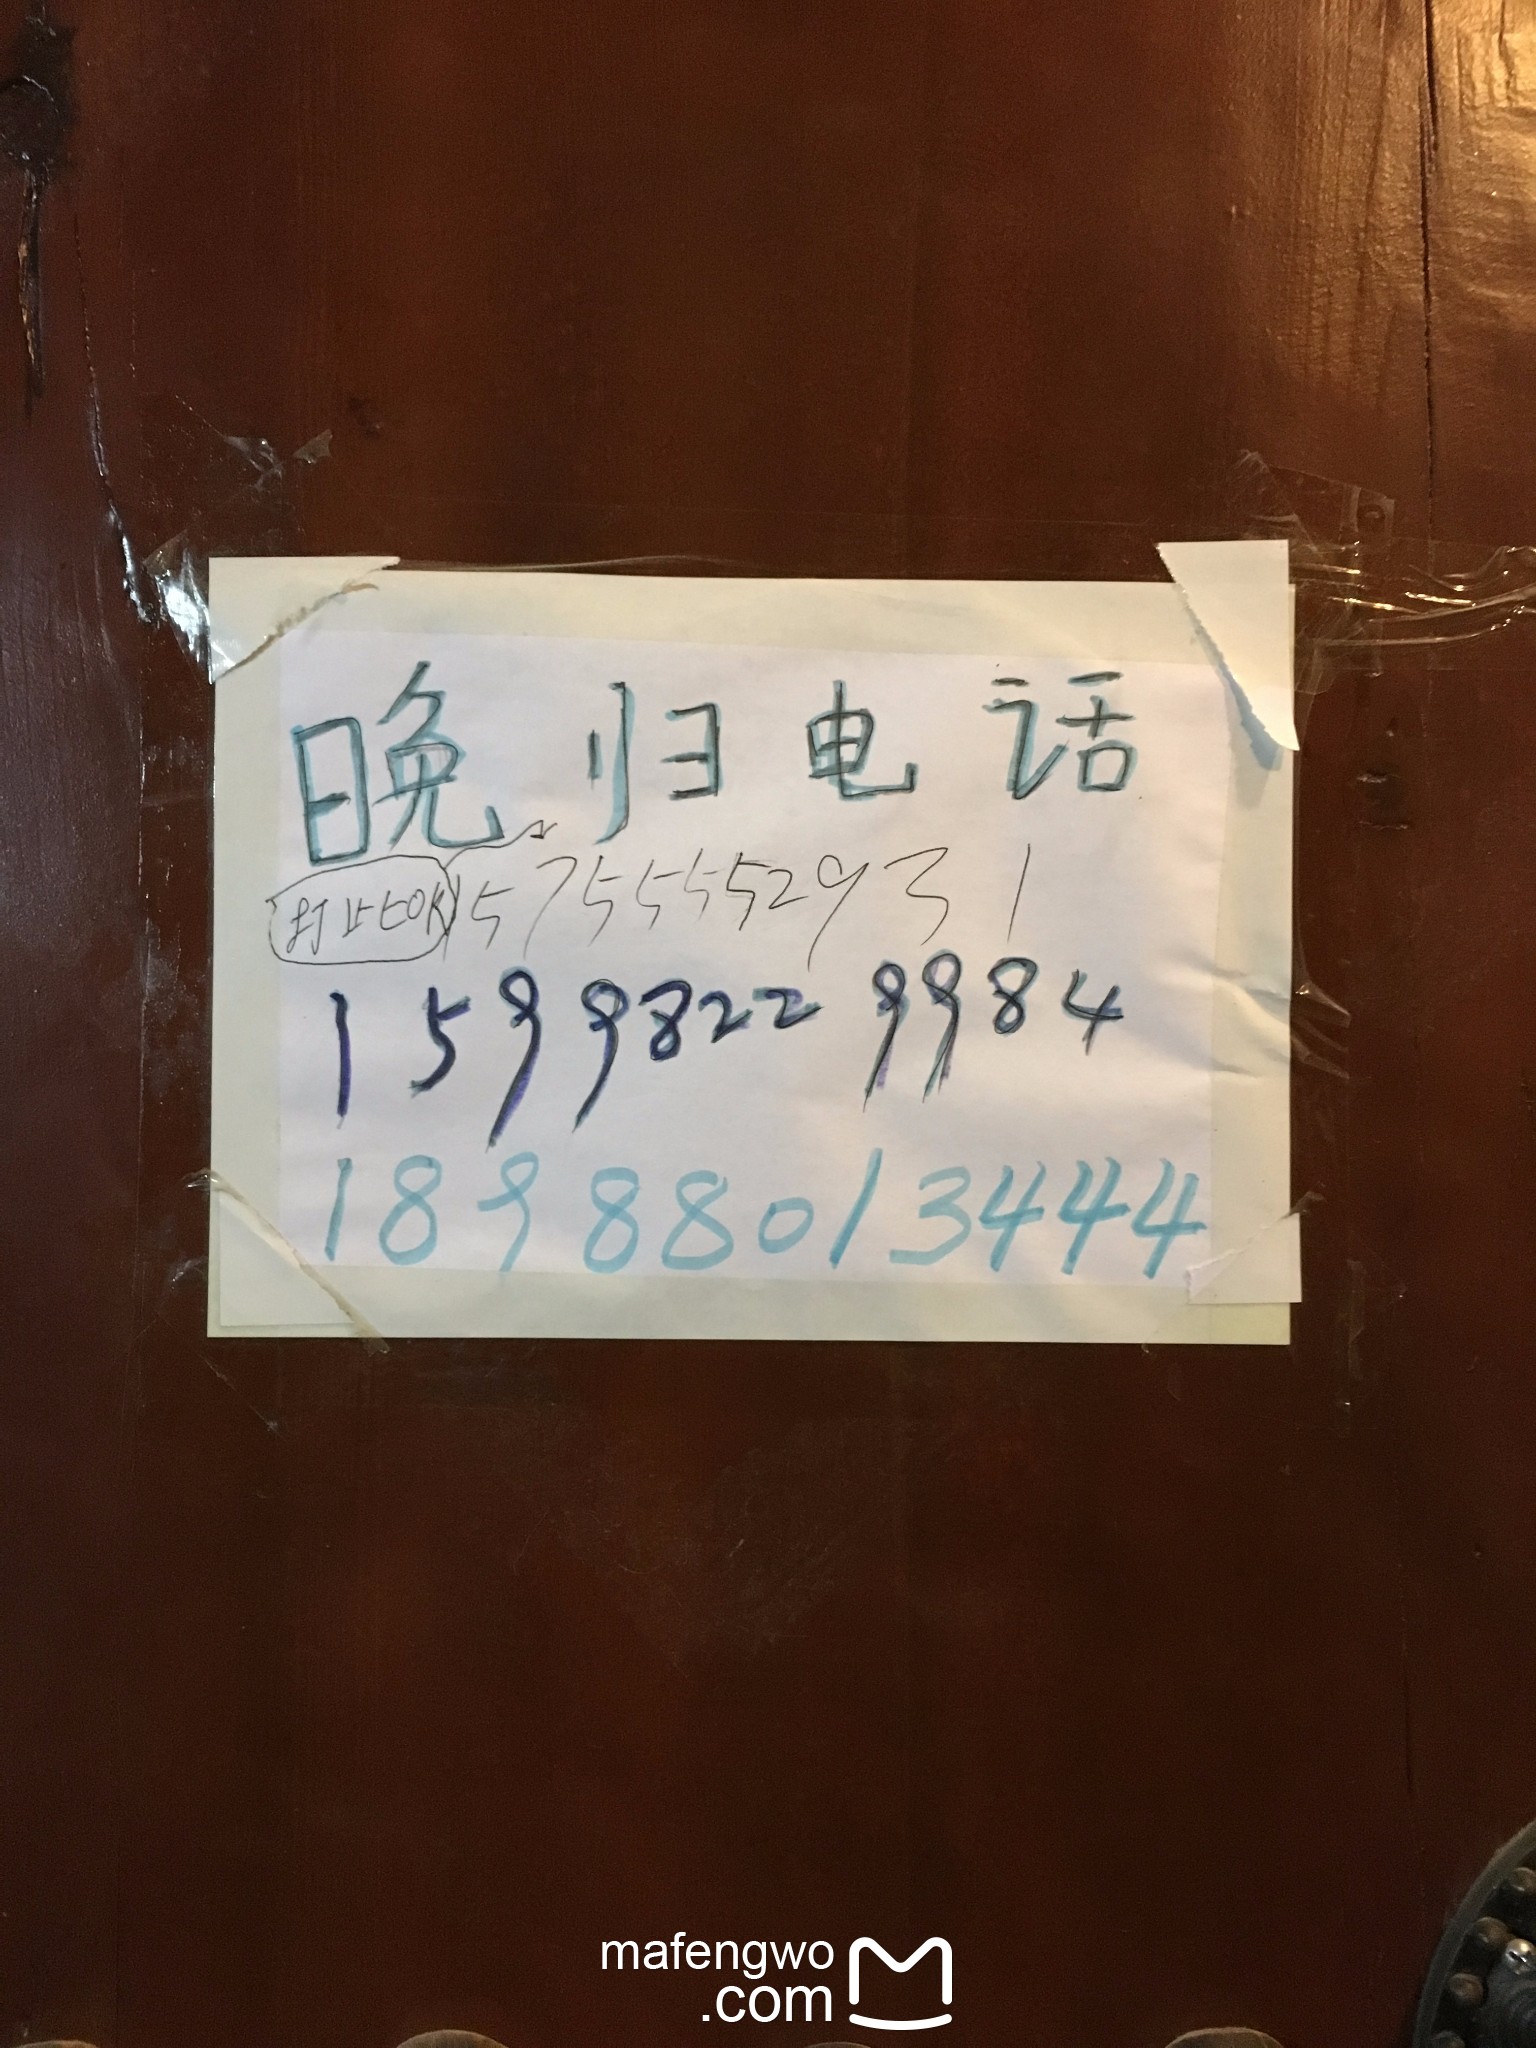 晚归电话
打此电OK 15755552931
15998229984
18988013444
mafengwo
.com